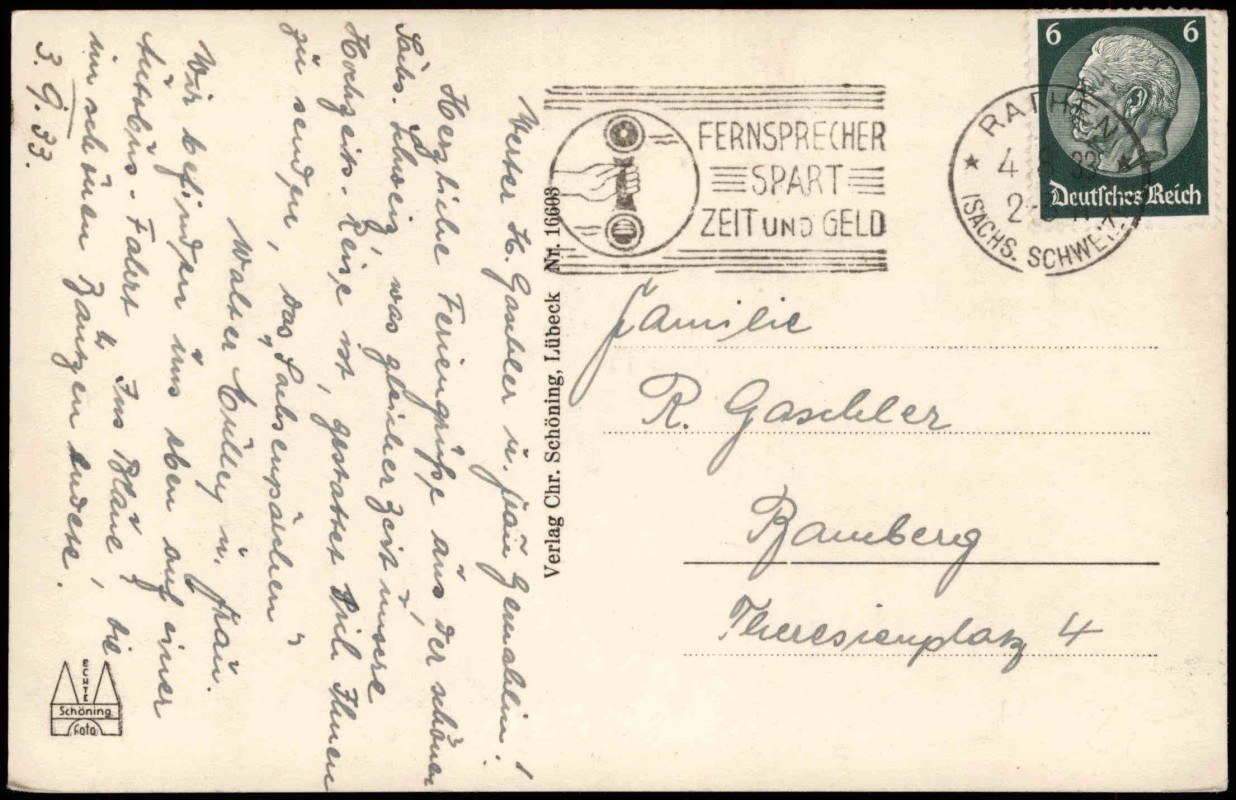 Werter H. Gaschler u. Frau Gemahlin!
Herzliche Feriengrüße aus der schönen
Sächs. Schweiz, was gleicher Zeit unsere
Hochzeits-Reise ist, gestattet sich Ihnen
zu senden, das „Sachsenpärchen"
Walter u. Frau.
Wir befinden uns eben auf einer
Autobus-Fahrt „Ins Blaue", die
im schönen endete.
3.9.33.
Verlag Chr. Schöning, Lübeck Nr. 16603
ECHTE
Schöning
Foto
FERNSPRECHER
SPART
ZEIT UND GELD
RATHEN
4. 33
2-
(SÄCHS. SCHWEIZ)
6 6
Deutsches Reich
Familie
R. Gaschler
Bamberg
Theresienplatz 4